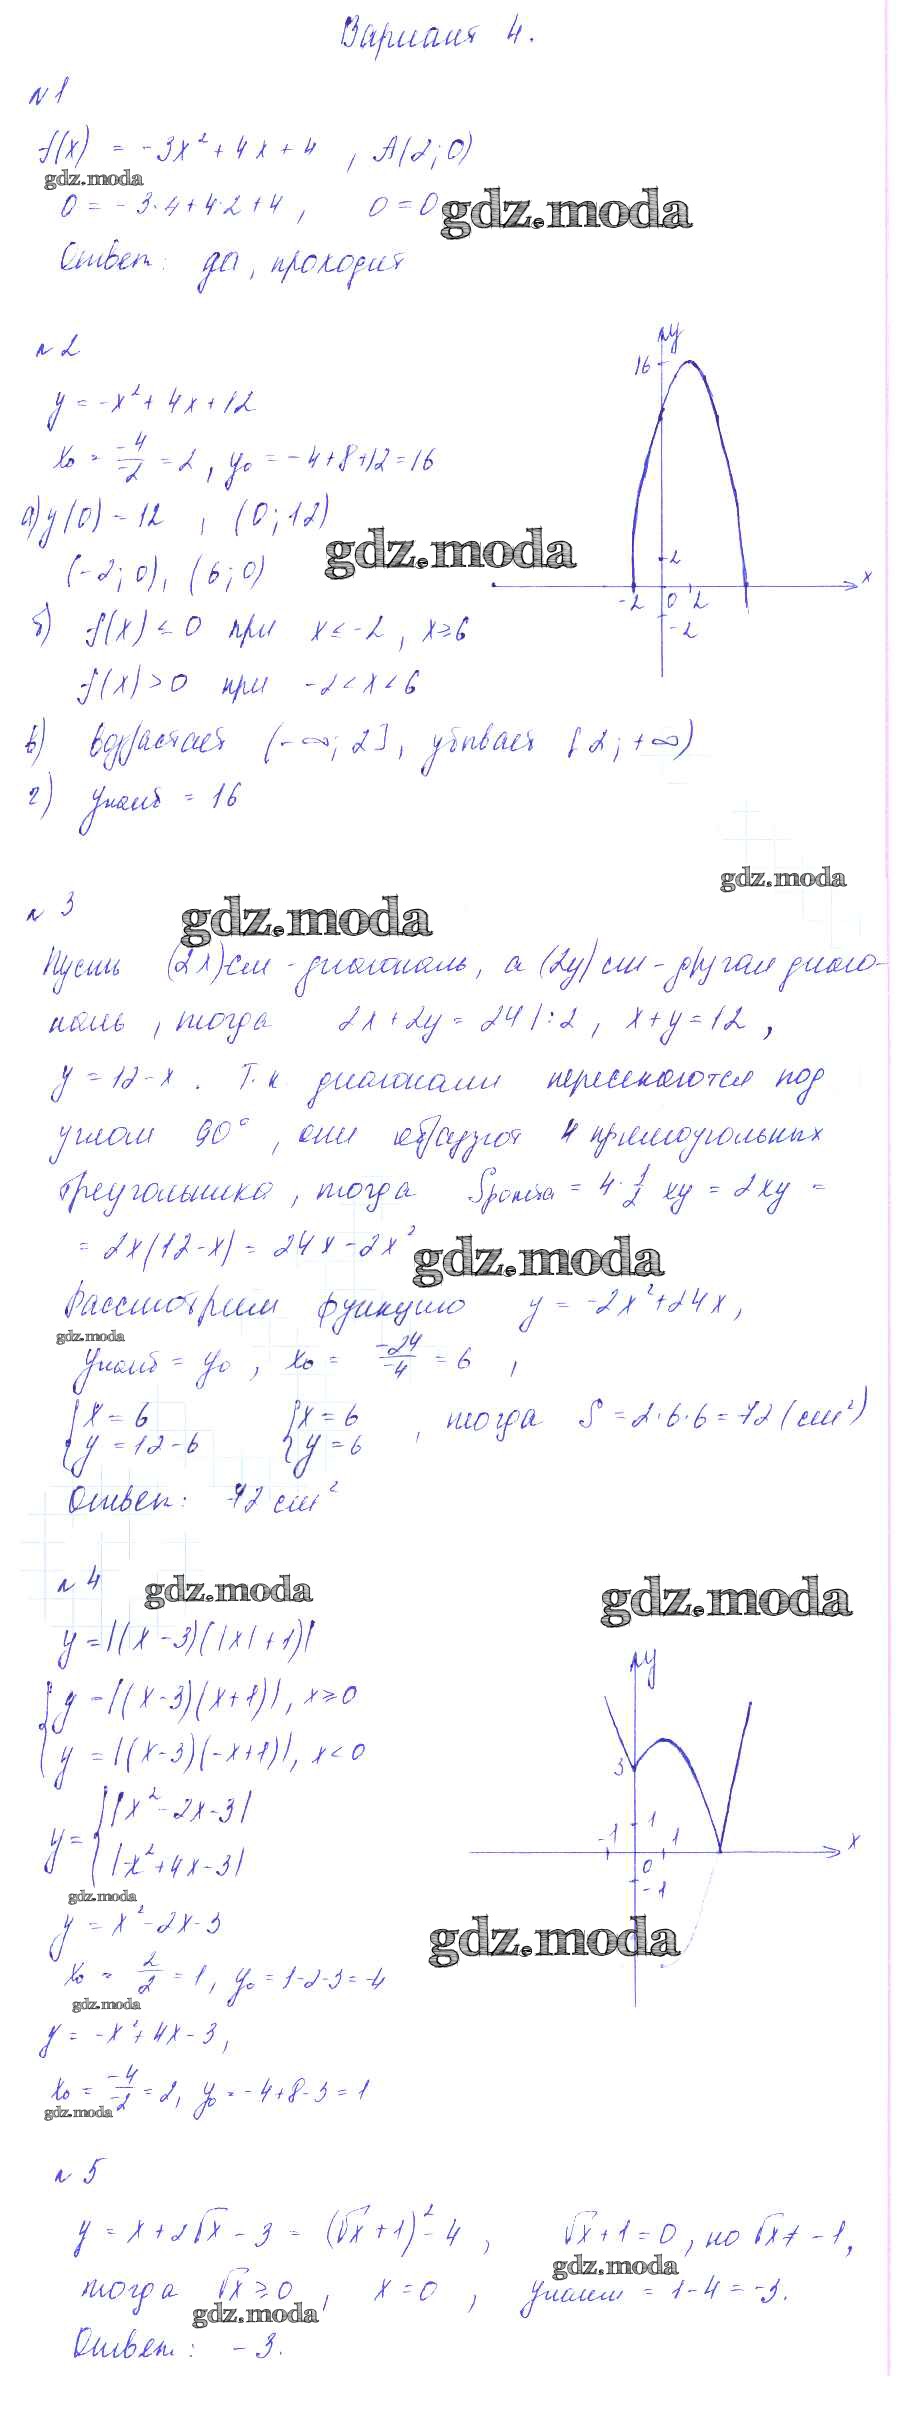 Вариант 4.
№ 1
f(x) = -3x² + 4x + 4 , A(2; 0)
gdz.moda
0 = -3·4 + 4·2 + 4 , 0 = 0
gdz.moda
Ответ: да, проходит
№ 2
y = -x² + 4x + 12
x₀ = -4/-2 = 2, y₀ = -4+8+12 = 16
а) y(0) = 12 , (0; 12)
(-2; 0), (6; 0)
gdz.moda
б) f(x) ≤ 0 при x ≤ -2, x ≥ 6
f(x) > 0 при -2 < x < 6
y
16
2
x
-2 0 2
-2
в) возрастает (-∞; 2], убывает [2; +∞)
г) yнаиб = 16
gdz.moda
№ 3
gdz.moda
Пусть (2x) см - диагональ, а (2y) см - другая диаго-
наль, тогда 2x + 2y = 24 |:2, x + y = 12,
y = 12 - x. Т.к. диагонали пересекаются под
углом 90°, они образуют 4 прямоугольных
треугольника, тогда Sромба = 4·1/2 xy = 2xy =
= 2x(12-x) = 24x - 2x²
gdz.moda
Рассмотрим функцию y = -2x² + 24x,
gdz.moda
yнаиб = y₀, x₀ = -24/-4 = 6 ,
{x = 6 {x = 6 , тогда S = 2·6·6 = 72 (см²)
{y = 12-6 {y = 6
Ответ: 72 см²
№ 4
gdz.moda
gdz.moda
y = |(x-3)(|x|+1)|
{y = |(x-3)(x+1)|, x ≥ 0
{y = |(x-3)(-x+1)|, x < 0
y = {|x² - 2x - 3|
{|-x² + 4x - 3|
gdz.moda
y
3
1
-1 1 x
0
-1
gdz.moda
y = x² - 2x - 3
x₀ = 2/2 = 1, y₀ = 1-2-3 = -4
gdz.moda
y = -x² + 4x - 3,
x₀ = -4/-2 = 2, y₀ = -4+8-3 = 1
gdz.moda
№ 5
y = x + 2√x - 3 = (√x + 1)² - 4 , √x + 1 = 0, но √x ≠ -1,
gdz.moda
тогда √x ≥ 0 , x = 0 , yнаим = 1-4 = -3.
gdz.moda
Ответ: -3.